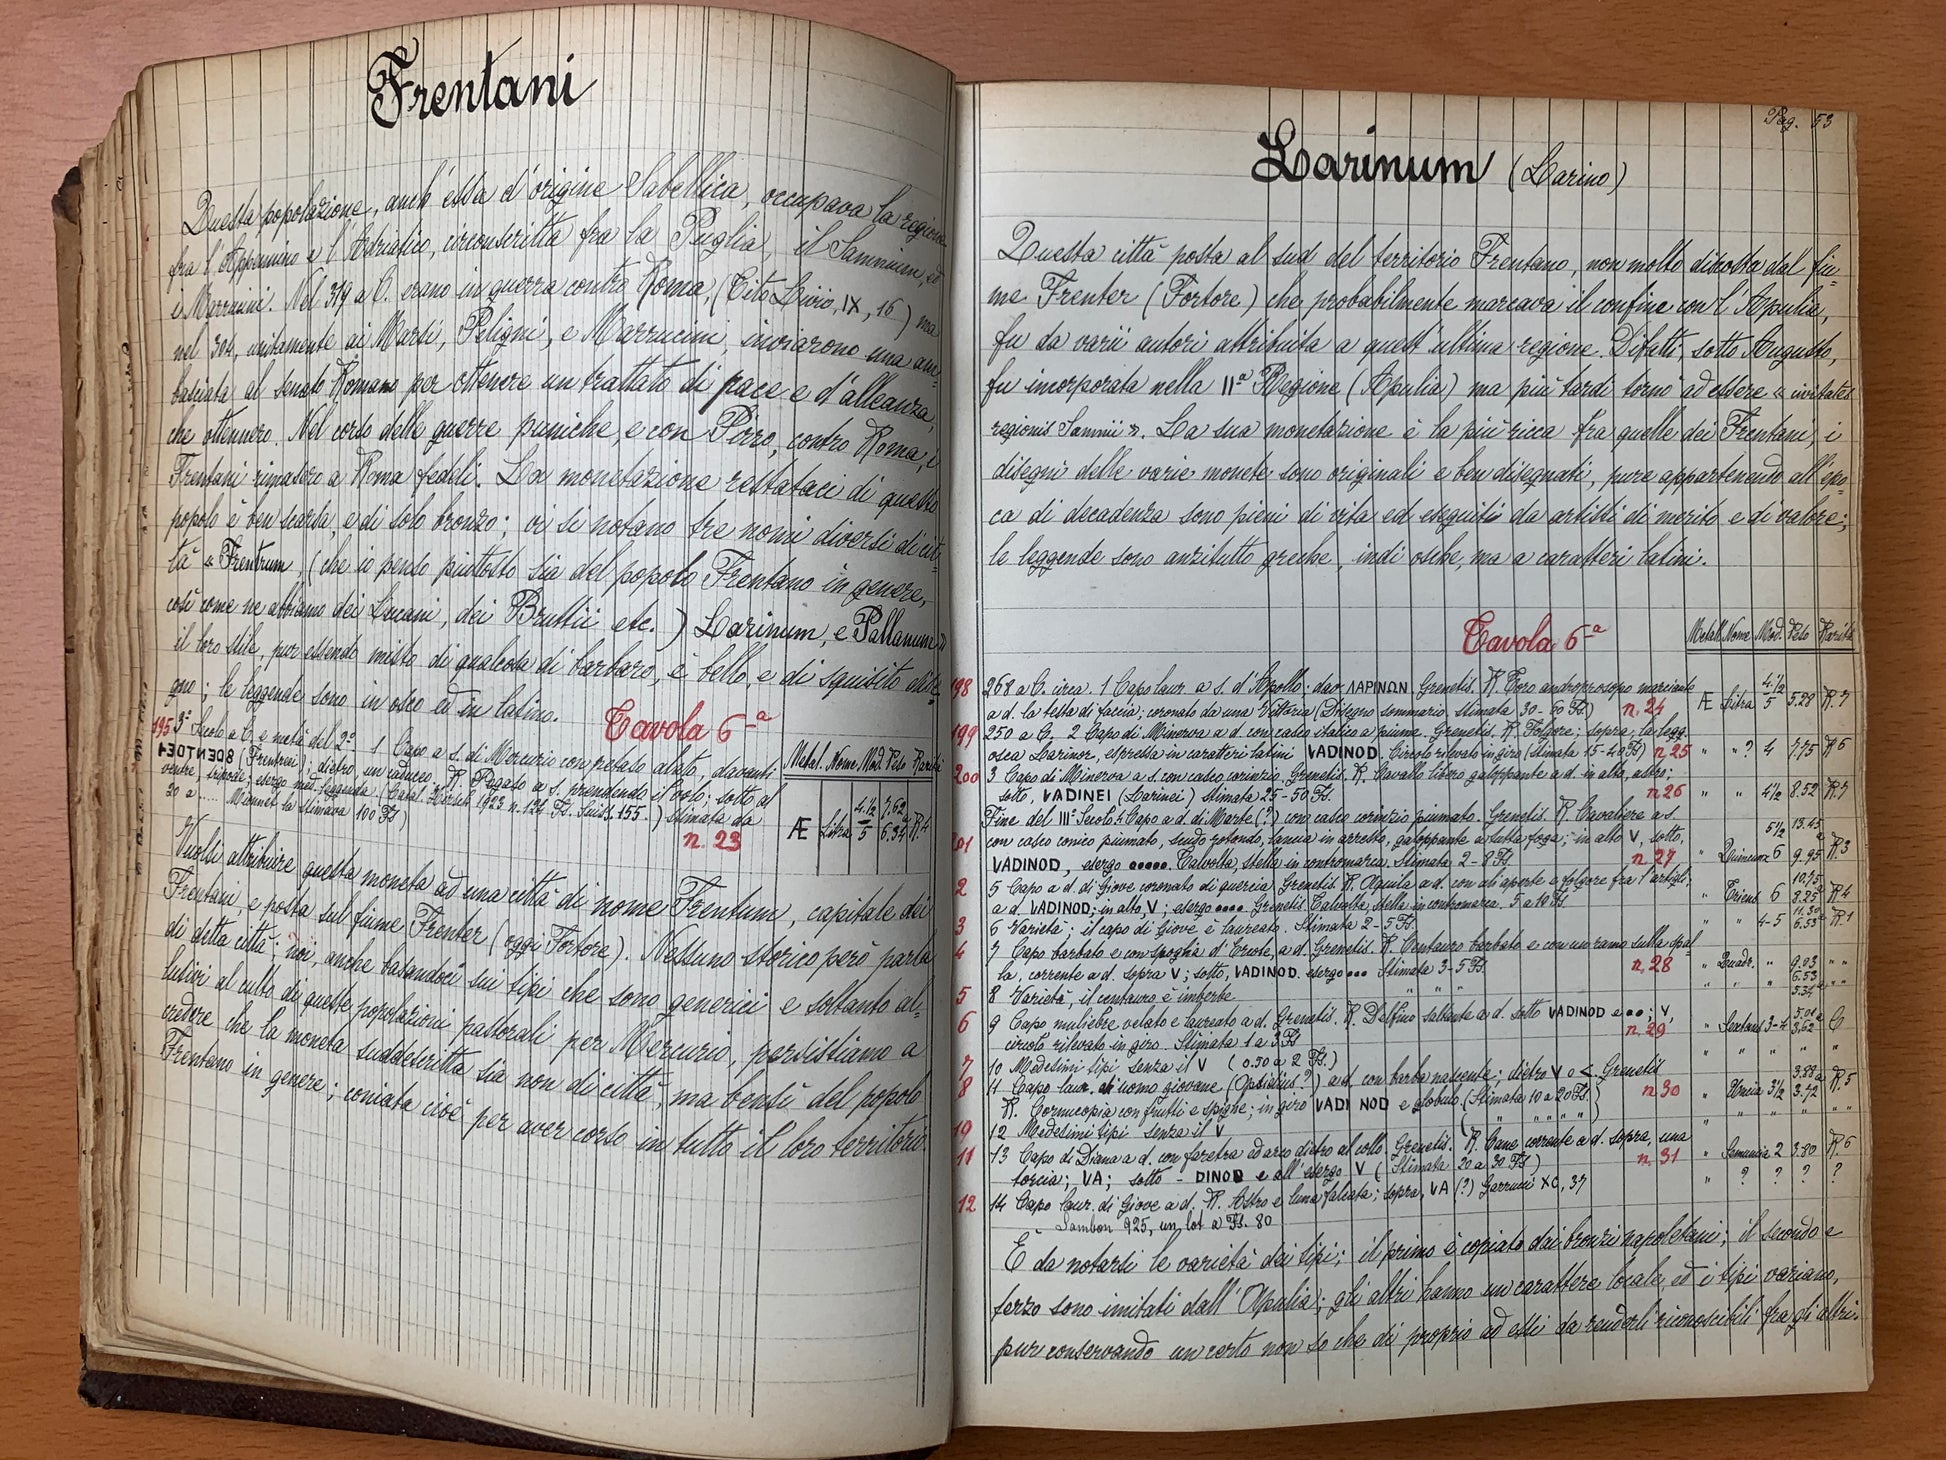 Frentani
Questa popolazione, anch'essa d'origine Sabellica, occupava la regione
fra l'Appennino e l'Adriatico, circonscritta fra la Puglia, il Samnium, ed
i Marrucini. Nel 319 a C. erano in guerra contro Roma, (Tito Livio, IX, 16) ma
nel 304, unitamente ai Marsi, Peligni, e Marrucini, inviarono una am-
basciata al senato Romano per ottenere un trattato di pace e d'alleanza,
che ottennero. Nel corso delle guerre puniche, e con Pirro, contro Roma, i
Frentani rimasero a Roma fedeli. La monetazione restataci di questo
popolo è ben scarsa, e di solo bronzo; vi si notano tre nomi diversi di cit-
tà "Frentrum, (che io penso piuttosto sia del popolo Frentano in genere,
così come ne abbiamo dei Lucani, dei Bruttii etc.) Larinum, e Pallanum"
il loro stile, pur essendo misto di qualcosa di barbaro, è bello, e di squisito dise-
gno; le leggende sono in osco ed in latino.
Tavola 6ª
Metal. Nome Mod. Peso Rarità
195 3º Secolo a C. e metà del 2º. 1 Capo a s. di Mercurio con petaso alato, davanti
(Frentrei); dietro, un caduceo. R. Pegaso a s. prendendo il volo; sotto al
ventre, tripode; esergo med. leggenda (Catal. 1923 n. 124 Fs. Suiss. 155.) stimata da
20 a ..... Mionnet la stimava 100 Fs)
n. 23
Æ Litra 4½ 5 7.62 a 6.34 R.4
Vuolsi attribuire questa moneta ad una città di nome Frentum, capitale dei
Frentani, e posta sul fiume Frenter (oggi Fortore). Nessuno storico però parla
di detta città; noi, anche basandoci sui tipi che sono generici e soltanto al-
lusivi al culto di queste popolazioni pastorali per Mercurio, persistiamo a
credere che la moneta suddescritta sia non di città, ma bensì del popolo
Frentano in genere; coniata cioè per aver corso in tutto il loro territorio.
Pag. 53
Larinum (Larino)
Questa città posta al sud del territorio Frentano, non molto discosta dal fiu-
me Frenter (Fortore) che probabilmente marcava il confine con l'Apulia,
fu da varii autori attribuita a quest'ultima regione. Difatti, sotto Augusto,
fu incorporata nella IIª Regione (Apulia) ma più tardi tornò ad essere « civitates
regionis Samnii ». La sua monetazione è la più ricca fra quelle dei Frentani, i
disegni delle varie monete sono originali e ben disegnati, pure appartenendo all'epo-
ca di decadenza sono pieni di vita ed eseguiti da artisti di merito e di valore;
le leggende sono anzitutto greche, indi osche, ma a caratteri latini.
Tavola 6ª
Metall. Nome Mod. Peso Rarità
198 268 a C. circa. 1 Capo laur. a s. d'Apollo; dav. ΛΑΡΙΝΩΝ. Grenetis. R. Toro androprosopo marciante
a d. la testa di faccia; coronato da una Vittoria (Disegno sommario, stimata 30-60 Fs) n. 24 Æ Litra 4½ 5 5.28 R.7
199 250 a C. 2 Capo di Minerva a d. con casco attico a piume. Grenetis. R. Folgore; sopra, la legg.
osca Larinor, espressa in caratteri latini VADINOD. Circolo rilevato in giro (Stimata 15-40 Fs) n 25 " " ? 4 7.75 R 6
200 3 Capo di Minerva a s. con casco corinzio. Grenetis. R. Cavallo libero galoppante a d. in alto, astro;
sotto, VADINEI (Larinei) stimata 25-50 Fs. n 26 " " 4½ 8.52 R.7
Fine del IIIº Secolo. 4 Capo a d. di Marte (?) con casco corinzio piumato. Grenetis. R. Cavaliere a s.
201 con casco conico piumato, scudo rotondo, lancia in arresto, galoppante a tutta foga; in alto V, sotto,
VADINOD, esergo •••••. Talvolta, stella in contromarca. Stimata 2-8 Fs. n. 27 " Quincunx 5½ 6 13.45 a 9.95 R.3
2 5 Capo a d. di Giove coronato di quercia. Grenetis. R. Aquila a d. con ali aperte e folgore fra l'artigli;
a d. VADINOD; in alto, V; esergo •••• Grenetis. Talvolta, stella in contromarca. 5 a 10 Fs " Triens 6 10.75 8.25 R 4
3 6 Varietà; il capo di Giove è laureato. Stimata 2-5 Fs. " " 4-5 11.30 6.53 R.1
4 7 Capo barbato e con spoglia d'Ercole, a d. Grenetis. R. Centauro barbato e con un ramo sulla spal-
la, corrente a d. sopra V; sotto, VADINOD. esergo ••• Stimata 3-5 Fs. n. 28 " Quadr. " 9.03 6.53 " "
5 8 Varietà, il centauro è imberbe " " " " " " 5.34 " "
6 9 Capo muliebre velato e laureato a d. Grenetis. R. Delfino saltante a d. sotto VADINOD e ••; V,
circolo rilevato in giro. Stimata 1 a 3 Fs n. 29 " Sextans 3-4 5.01 a 3.62 C
7 10 Medesimi tipi senza il V (0.50 a 2 Fs.) " " " " "
8 11 Capo laur. di uomo giovane (Opsidius?) a d. con barba nascente; dietro V o <. Grenetis
R. Cornucopia con frutti e spighe; in giro VADI NOD e globulo. (Stimata 10 a 20 Fs.) n 30 " Uncia 3½ 3.88 a 3.72 R.5
10 12 Medesimi tipi senza il V ( " " " " ) " " " " " "
11 13 Capo di Diana a d. con faretra ed arco dietro al collo. Grenetis. R. Cane corrente a d. sopra, una
torcia; VA; sotto - DINOD e all'esergo V (Stimata 20 a 30 Fs) n. 31 " Semuncia 2 3.80 R.6
12 14 Capo laur. di Giove a d. R. Astro e luna falcata; sopra, VA (?) Garrucci XC, 37 " ? ? ? ?
Sambon 925, un lot a Fs. 80
È da notarsi le varietà dei tipi; il primo è copiato dai bronzi napoletani; il secondo e
terzo sono imitati dall'Apulia; gli altri hanno un carattere locale, ed i tipi variano,
pur conservando un certo non so che di proprio ad essi da renderli riconoscibili fra gli altri.